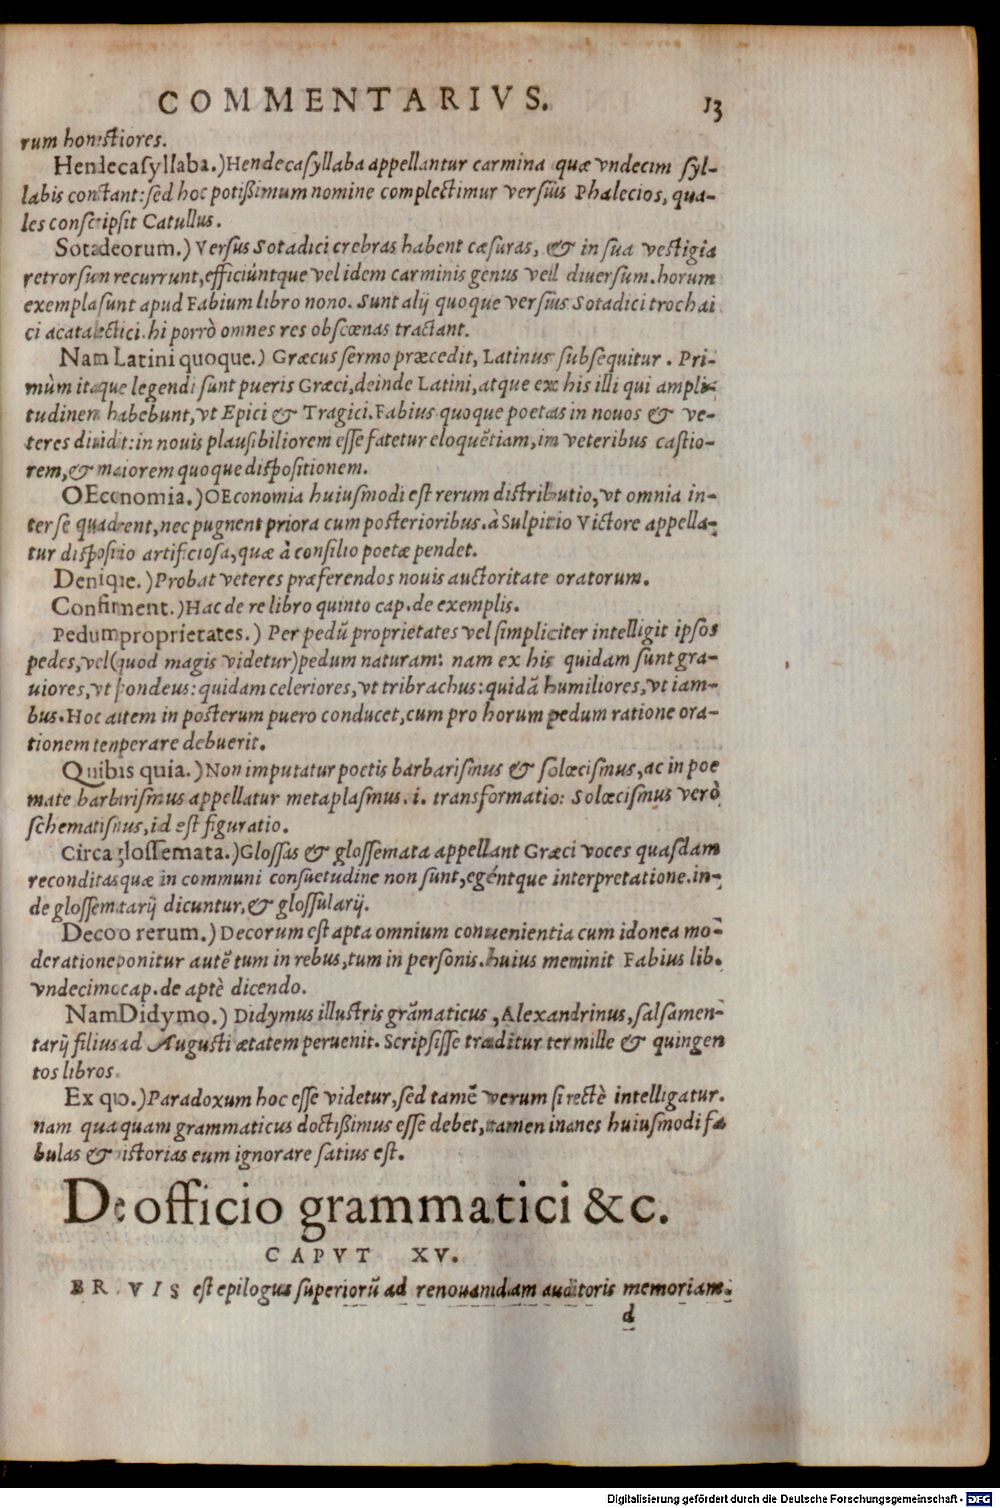 COMMENTARIVS. 13
rum honestiores.
Hendecasyllaba.) Hendecasyllaba appellantur carmina quæ vndecim syl-
labis constant: sed hoc potißimum nomine complectimur versũs Phalecios, qua-
les conscripsit Catullus.
Sotadeorum.) Versus Sotadici crebras habent cæsuras, & in sua vestigia
retrorsun recurrunt, efficiúntque vel idem carminis genus vel diuersum. horum
exempla sunt apud Fabium libro nono. Sunt alij quoque versũs Sotadici trochai
ci acatalectici. hi porrò omnes res obscœnas tractant.
Nam Latini quoque.) Græcus sermo præcedit, Latinus subsequitur. Pri-
mùm itaque legendi sunt pueris Græci, deinde Latini, atque ex his illi qui ampli-
tudinem habebunt, vt Epici & Tragici. Fabius quoque poetas in nouos & ve-
teres diuidit: in nouis plausibiliorem esse fatetur eloquẽtiam, in veteribus castio-
rem, & maiorem quoque dispositionem.
OEconomia.) OEconomia huiusmodi est rerum distributio, vt omnia in-
ter se quadrent, nec pugnent priora cum posterioribus. à Sulpitio Victore appella-
tur dispositio artificiosa, quæ à consilio poetæ pendet.
Denique.) Probat veteres præferendos nouis auctoritate oratorum.
Confirment.) Hac de re libro quinto cap. de exemplis.
Pedum proprietates.) Per pedũ proprietates vel simpliciter intelligit ipsos
pedes, vel (quod magis videtur) pedum naturam: nam ex his quidam sunt gra-
uiores, vt spondeus: quidam celeriores, vt tribrachus: quidã humiliores, vt iam-
bus. Hoc autem in posterum puero conducet, cum pro horum pedum ratione ora-
tionem temperare debuerit.
Quibus quia.) Non imputatur poetis barbarismus & solœcismus, ac in poe
mate barbarismus appellatur metaplasmus. i. transformatio: Solœcismus verò
schematismus, id est figuratio.
Circa glossemata.) Glossas & glossemata appellant Græci voces quasdam
reconditas quæ in communi consuetudine non sunt, egéntque interpretatione. in-
de glossematarij dicuntur, & glossularij.
Decoro rerum.) Decorum est apta omnium conuenientia cum idonea mo-
deratione ponitur autẽ tum in rebus, tum in personis. huius meminit Fabius lib.
vndecimo cap. de aptè dicendo.
Nam Didymo.) Didymus illustris grãmaticus, Alexandrinus, salsamen-
tarij filius ad Augusti ætatem peruenit. Scripsisse traditur ter mille & quingen
tos libros.
Ex quo.) Paradoxum hoc esse videtur, sed tamẽ verum si rectè intelligatur.
nam quaquam grammaticus doctißimus esse debet, tamen inanes huiusmodi fa
bulas & historias eum ignorare satius est.
De officio grammatici &c.
CAPVT XV.
BREVIS est epilogus superiorũ ad renouandam auditoris memoriam.
d
Digitalisierung gefördert durch die Deutsche Forschungsgemeinschaft - DFG